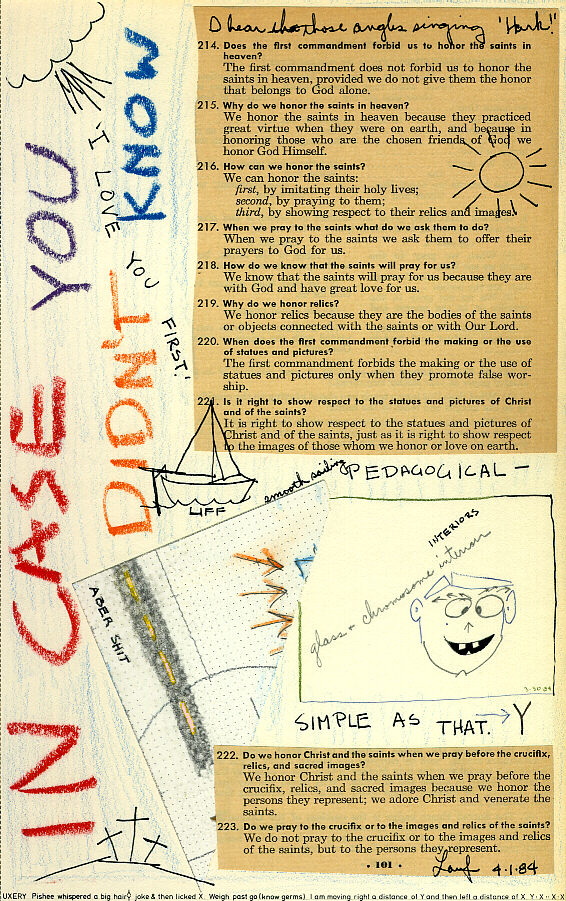 IN CASE YOU
DIDN'T KNOW
'I LOVE YOU FIRST!'
I hear those angles singing 'Hark!'
214. Does the first commandment forbid us to honor the saints in
heaven?
The first commandment does not forbid us to honor the
saints in heaven, provided we do not give them the honor
that belongs to God alone.
215. Why do we honor the saints in heaven?
We honor the saints in heaven because they practiced
great virtue when they were on earth, and because in
honoring those who are the chosen friends of God we
honor God Himself.
216. How can we honor the saints?
We can honor the saints:
first, by imitating their holy lives;
second, by praying to them;
third, by showing respect to their relics and images.
217. When we pray to the saints what do we ask them to do?
When we pray to the saints we ask them to offer their
prayers to God for us.
218. How do we know that the saints will pray for us?
We know that the saints will pray for us because they are
with God and have great love for us.
219. Why do we honor relics?
We honor relics because they are the bodies of the saints
or objects connected with the saints or with Our Lord.
220. When does the first commandment forbid the making or the use
of statues and pictures?
The first commandment forbids the making or the use of
statues and pictures only when they promote false wor-
ship.
221. Is it right to show respect to the statues and pictures of Christ
and of the saints?
It is right to show respect to the statues and pictures of
Christ and of the saints, just as it is right to show respect
to the images of those whom we honor or love on earth.
LIFF
smooth sailing
PEDAGOGICAL —
ABER SHIT
INTERIORS
glass + chromosome interior
3-30-84
SIMPLE AS THAT. → Y
222. Do we honor Christ and the saints when we pray before the crucifix,
relics, and sacred images?
We honor Christ and the saints when we pray before the
crucifix, relics, and sacred images because we honor the
persons they represent; we adore Christ and venerate the
saints.
223. Do we pray to the crucifix or to the images and relics of the saints?
We do not pray to the crucifix or to the images and relics
of the saints, but to the persons they represent.
• 101 •
4.1.84
UXERY Pishee whispered a big hairy joke & then licked X. Weigh past go (know germs). I am moving right a distance of Y and then left a distance of X. Y · X - · X · X